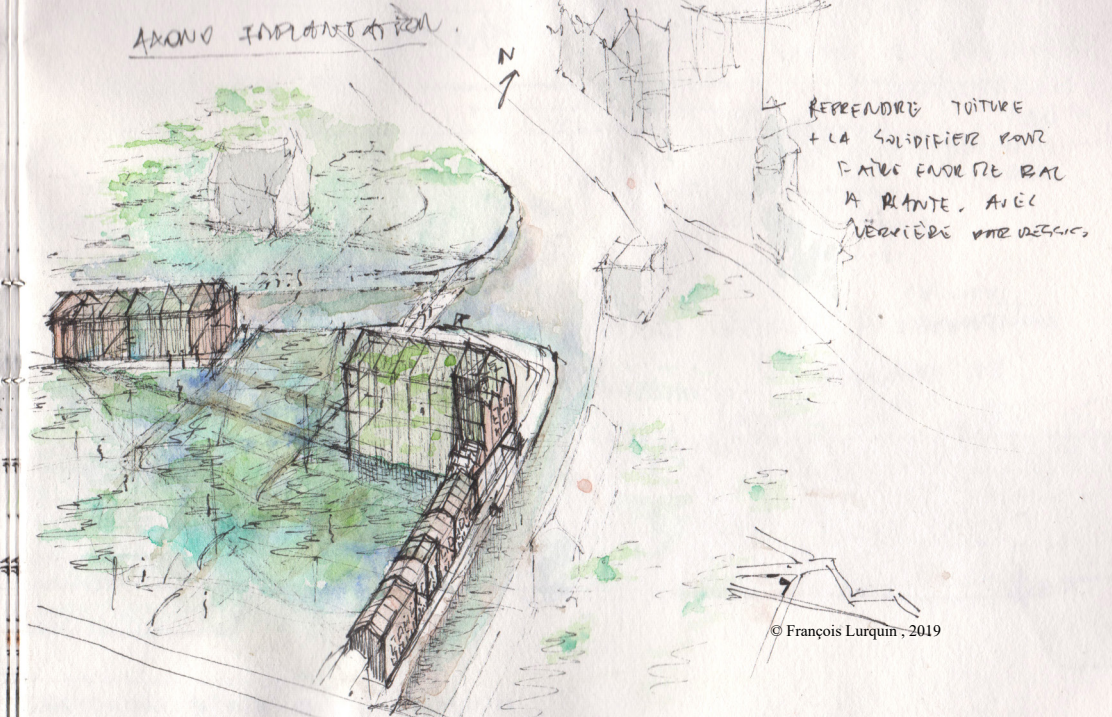 AXONO IMPLANTATION.
N
REPRENDRE TOITURE
+ LA SOLIDIFIER POUR
FAIRE ENORME BAC
A PLANTE. AVEC
VERRIÈRE
© François Lurquin , 2019